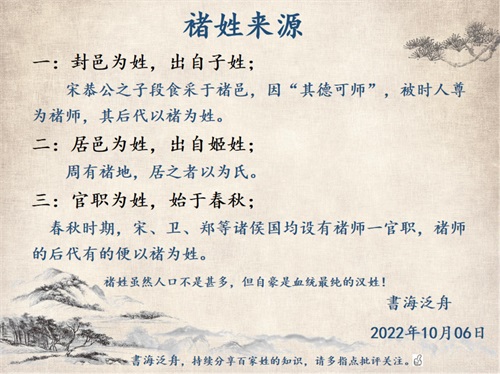 褚姓来源
一：封邑为姓，出自子姓；
宋恭公之子段食采于褚邑，因“其德可师”，被时人尊
为褚师，其后代以褚为姓。
二：居邑为姓，出自姬姓；
周有褚地，居之者以为氏。
三：官职为姓，始于春秋；
春秋时期，宋、卫、郑等诸侯国均设有褚师一官职，褚师
的后代有的便以褚为姓。
褚姓虽然人口不是甚多，但自豪是血统最纯的汉姓！
書海泛舟
2022年10月06日
書海泛舟，持续分享百家姓的知识，请多指点批评关注。